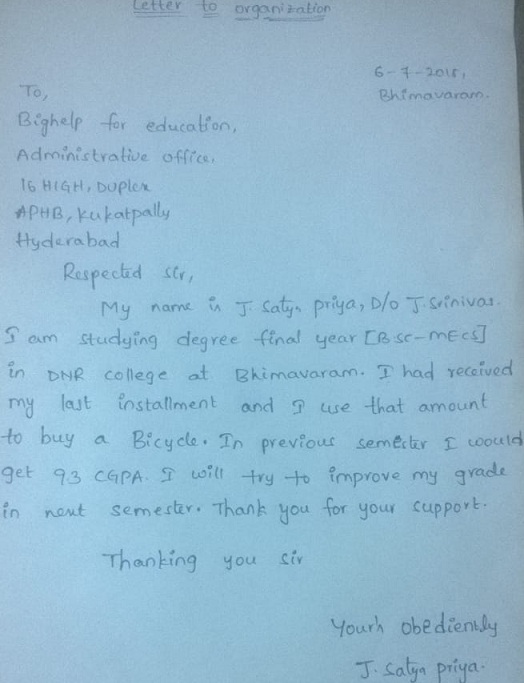 Letter to organization
6-7-2015,
Bhimavaram.
To,
Bighelp for education,
Administrative office,
16 HIGH, DUPLEX
APHB, Kukatpally
Hyderabad
Respected sir,
My name is J. Satya priya, D/o J. Srinivas.
I am studying degree final year [B sc-mEcs]
in DNR college at Bhimavaram. I had received
my last installment and I use that amount
to buy a Bicycle. In previous semester I would
get 9.3 CGPA. I will try to improve my grade
in next semester. Thank you for your support.
Thanking you sir
Your's obediently
J. Satya priya.